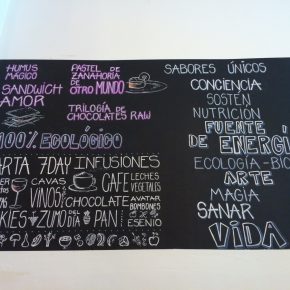 HUMUS
MÁGICO
SANDWICH
AMOR
PASTEL DE
ZANAHORIA
DE OTRO MUNDO
TRILOGÍA DE
CHOCOLATES RAW
100% ECOLÓGICO
ARTA 7DAY INFUSIONES
CAVAS
VINOS
CAFE
LECHES
VEGETALES
CHOCOLATE
AVATAR
BOMBONES
KIES ZUMO DEL DÍA PAN DE ESENIO
SABORES ÚNICOS
CONCIENCIA
SOSTEN
NUTRICIÓN
FUENTE
DE ENERGÍ
ECOLOGÍA-BIO
ARTE
MAGIA
SANAR
VIDA